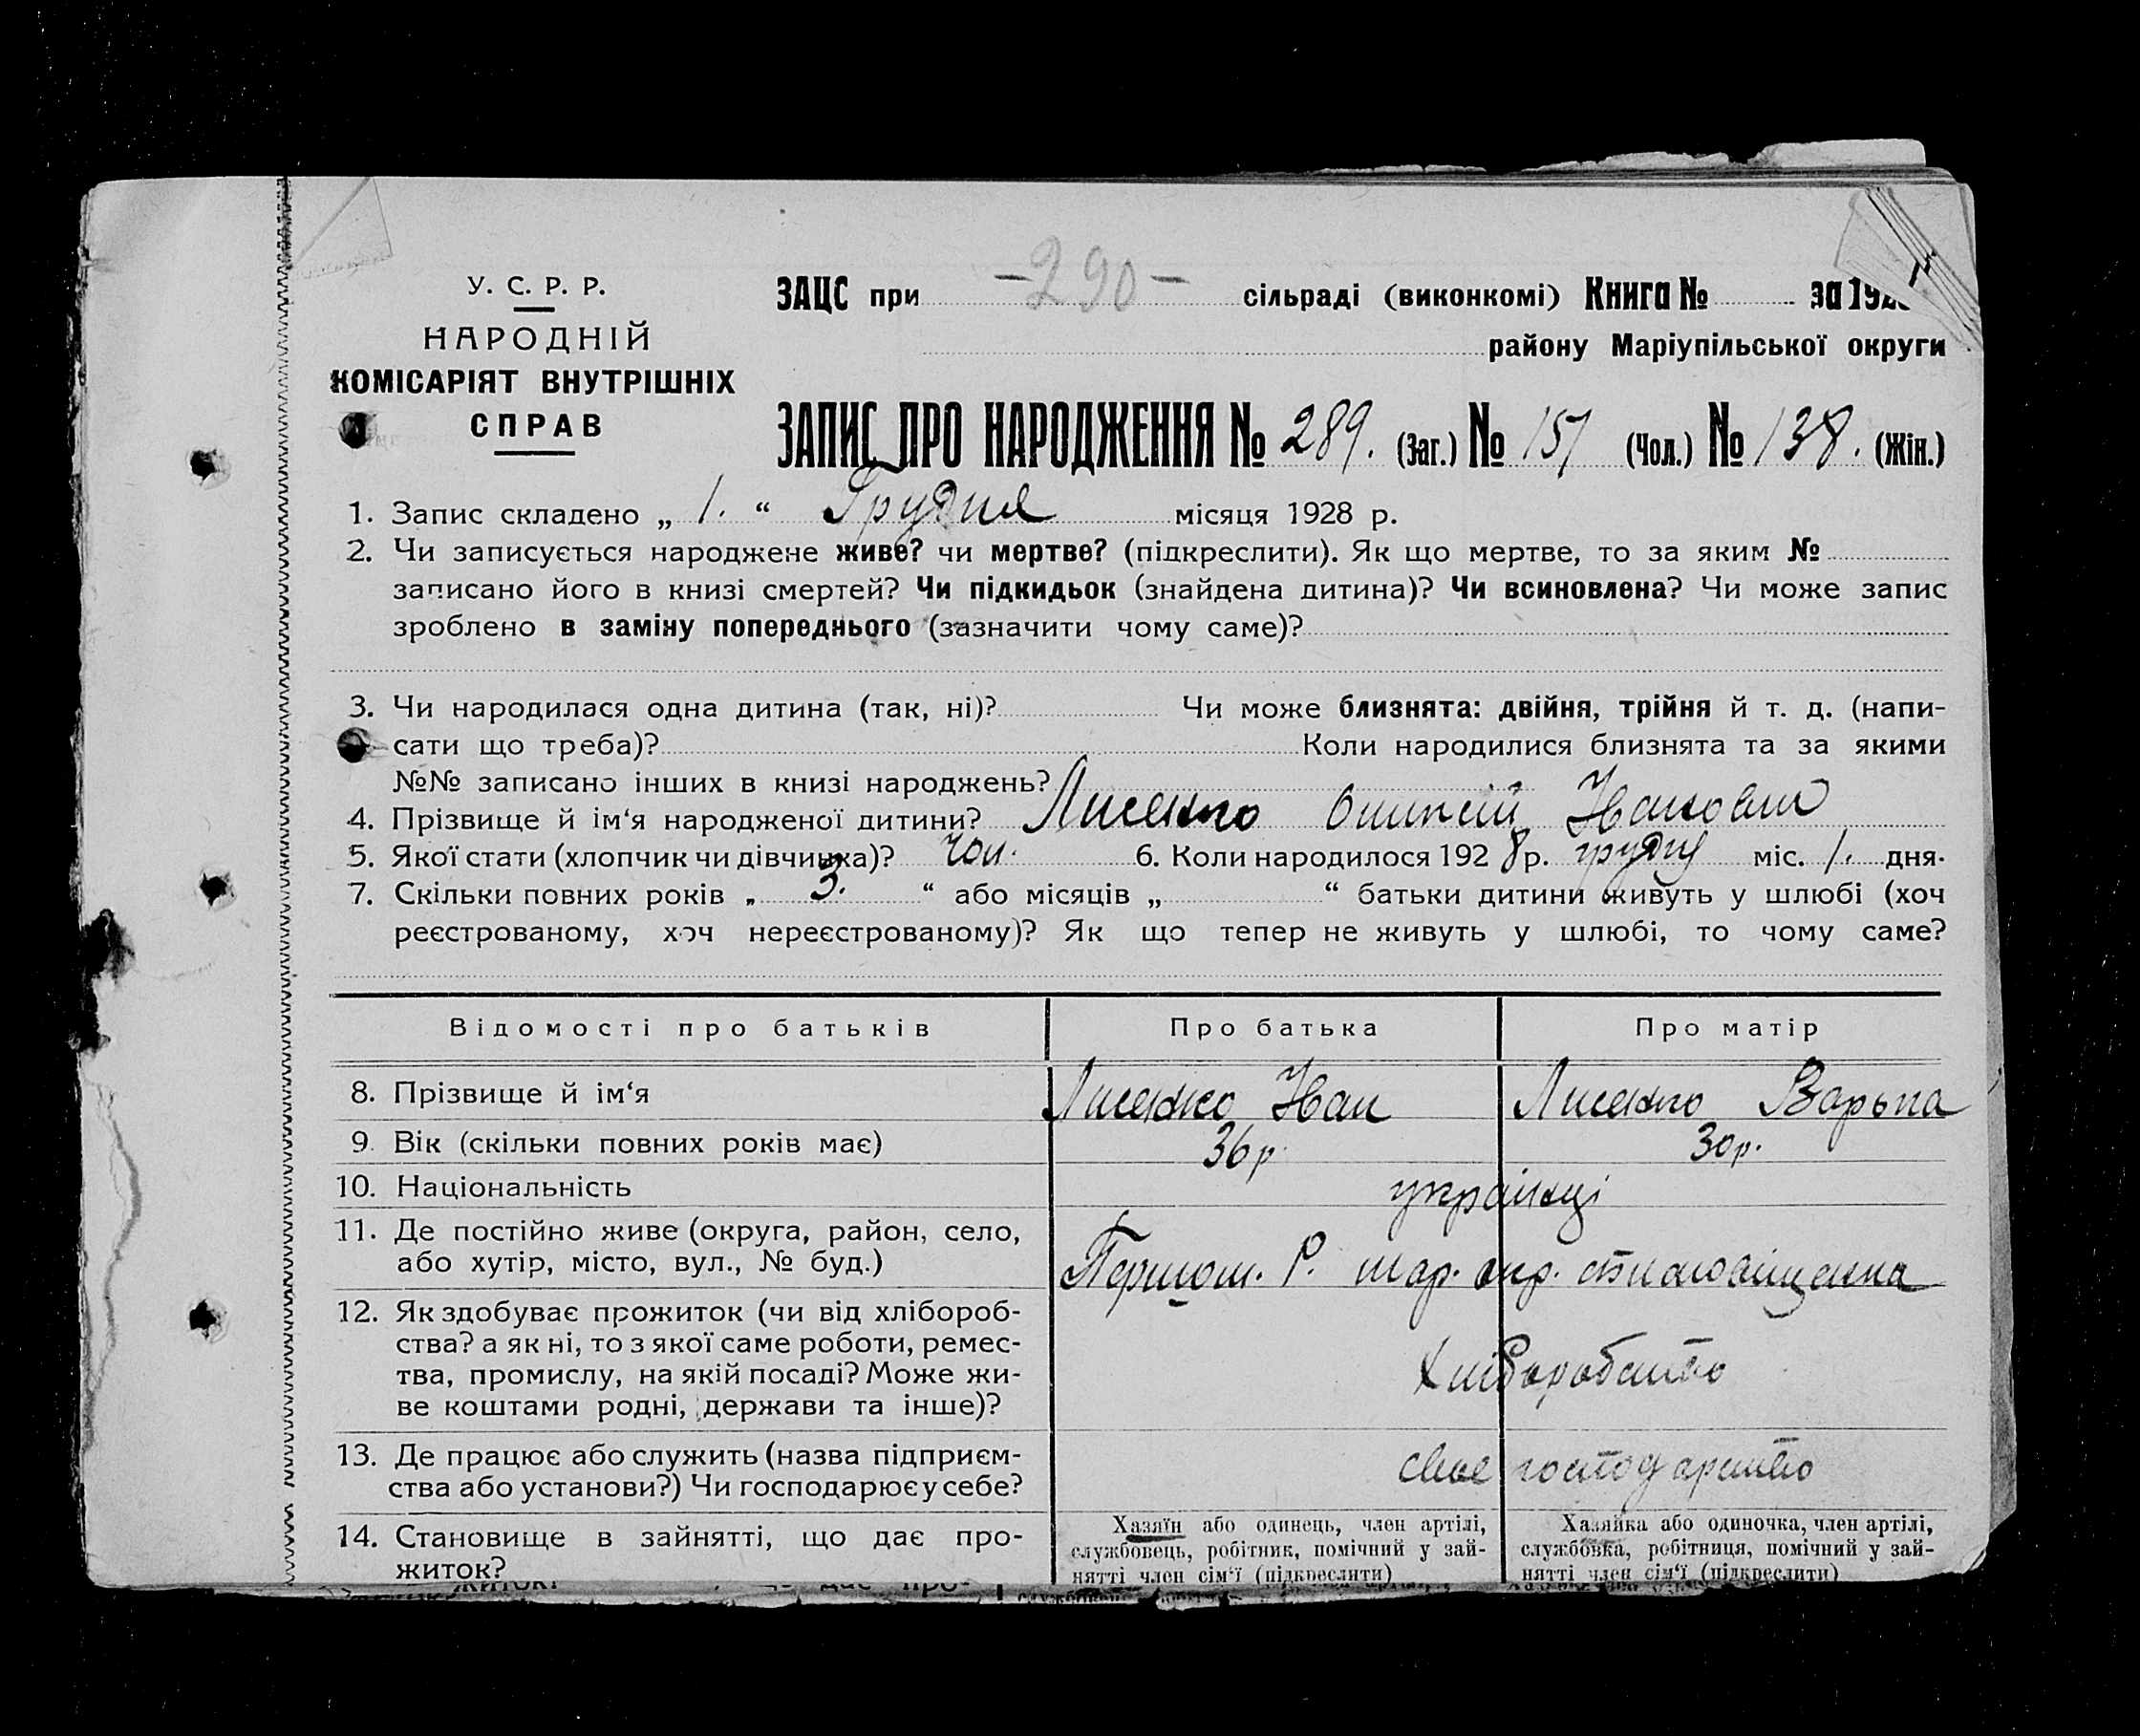 -290-
У. С. Р. Р.
НАРОДНІЙ
КОМІСАРІЯТ ВНУТРІШНІХ
СПРАВ
ЗАЦС при сільраді (виконкомі) Книга № за 192
району Маріупільської округи
ЗАПИС ПРО НАРОДЖЕННЯ № 289. (Заг.) № 151 (Чол.) № 138. (Жін.)
1. Запис складено „ 1. “ Грудня місяця 1928 р.
2. Чи записується народжене живе? чи мертве? (підкреслити). Як що мертве, то за яким №
записано його в книзі смертей? Чи підкидьок (знайдена дитина)? Чи всиновлена? Чи може запис
зроблено в заміну попереднього (зазначити чому саме)?
3. Чи народилася одна дитина (так, ні)? Чи може близнята: двійня, трійня й т. д. (напи-
сати що треба)? Коли народилися близнята та за якими
№№ записано інших в книзі народжень?
4. Прізвище й ім‘я народженої дитини? Лисенко Іванович
5. Якої стати (хлопчик чи дівчинка)? чол. 6. Коли народилося 1928 р. грудня міс. 1. дня.
7. Скільки повних років „ 3. “ або місяців „ “ батьки дитини живуть у шлюбі (хоч
реєстрованому, хоч нереєстрованому)? Як що тепер не живуть у шлюбі, то чому саме?
Відомості про батьків Про батька Про матір
8. Прізвище й ім‘я Лисенко Іван Лисенко Варька
9. Вік (скільки повних років має) 36 р. 30 р.
10. Національність українці
11. Де постійно живе (округа, район, село,
або хутір, місто, вул., № буд.) Першот. Р. мар. окр.
12. Як здобуває прожиток (чи від хлібороб-
ства? а як ні, то з якої саме роботи, ремес-
тва, промислу, на якій посаді? Може жи-
ве коштами родні, держави та інше)? Хліборобство
13. Де працює або служить (назва підприєм-
ства або установи?) Чи господарює у себе? своє господарство
14. Становище в зайнятті, що дає про-
житок?
Хазяїн або одинець, член артілі,
службовець, робітник, помічний у зай-
нятті член сім‘ї (підкреслити)
Хазяйка або одиночка, член артілі,
службовка, робітниця, помічний у зай-
нятті член сім‘ї (підкреслити)